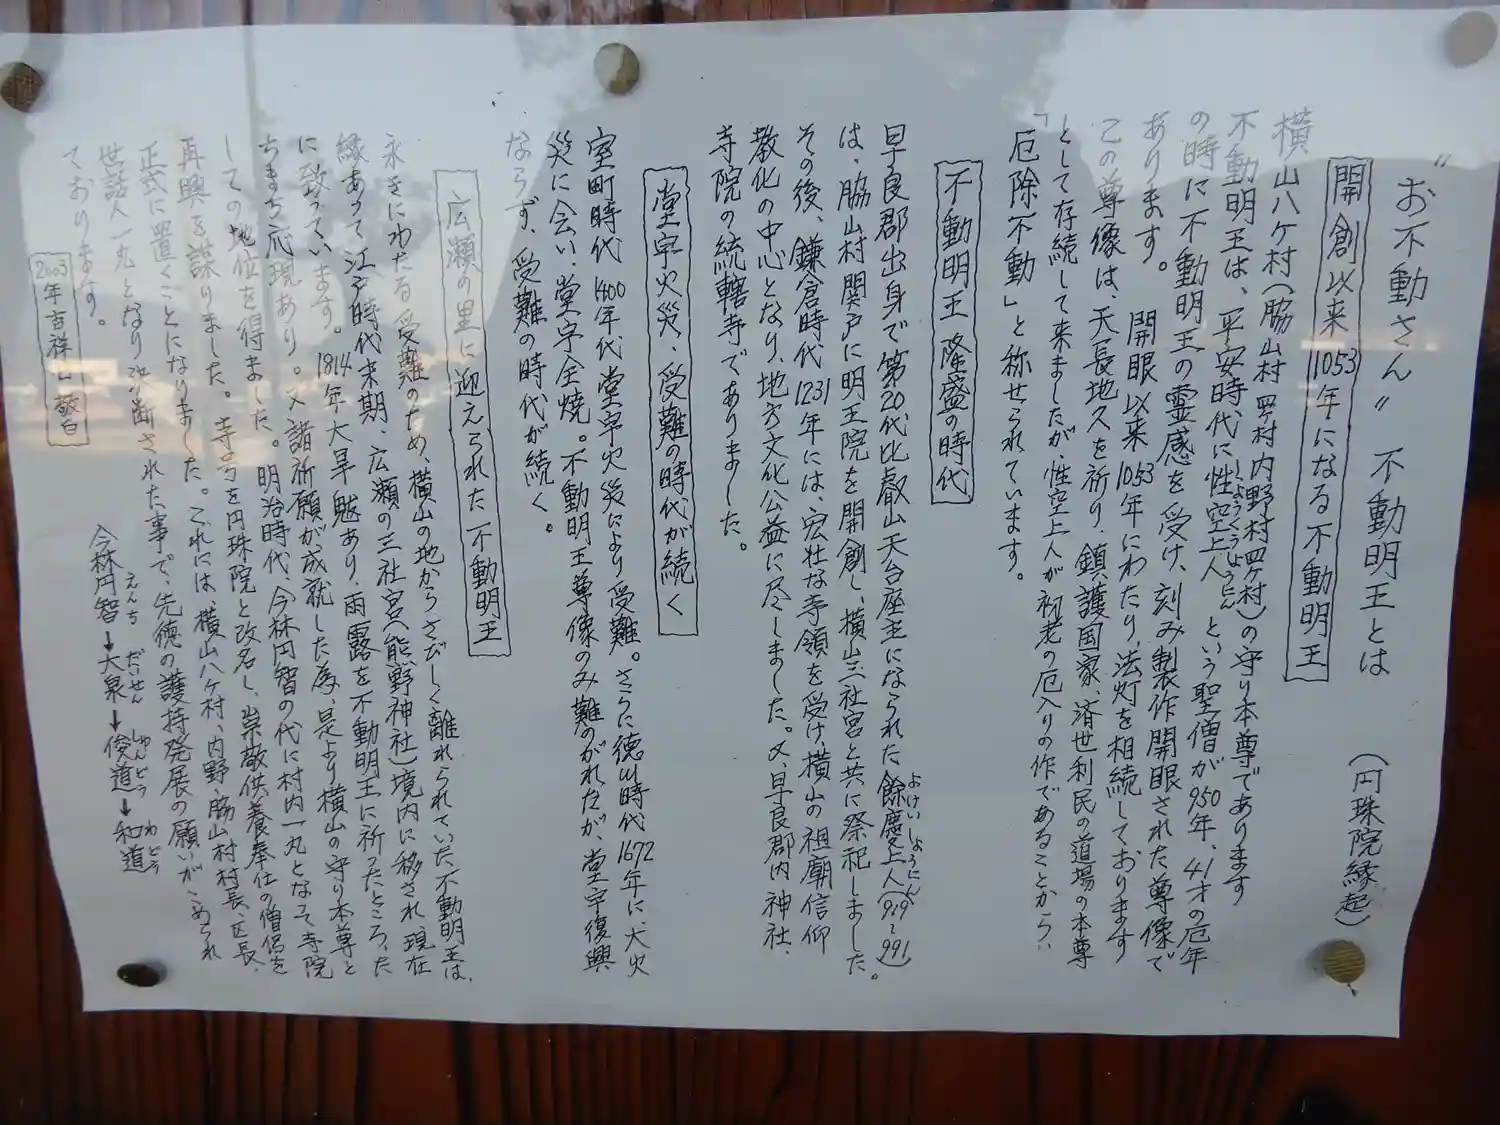 "お不動さん" 不動明王とは (円珠院縁起)
開創以来1053年になる不動明王
横山八ケ村(脇山村四ケ村内野村四ケ村)の守り本尊であります
不動明王は、平安時代に性空上人という聖僧が950年、41才の厄年
しょうくうしょうにん
の時に不動明王の霊感を受け、刻み製作開眼された尊像で
あります。 開眼以来1053年にわたり、法灯を相続しております
この尊像は、天長地久を祈り、鎮護国家、済世利民の道場の本尊
として存続して来ましたが、性空上人が初老の厄入りの作であることから、
「厄除不動」と称せられています。
不動明王 隆盛の時代
早良郡出身で第20代比叡山天台座主になられた餘慶上人(919~991)
よけいしょうにん
は、脇山村関戸に明王院を開創し、横山三社宮と共に祭祀しました。
その後、鎌倉時代1231年には、宏壮な寺領を受け、横山の祖廟信仰
教化の中心となり、地方文化公益に尽くしました。又、早良郡内神社、
寺院の統轄寺でありました。
堂宇火災、受難の時代が続く
室町時代1400年代堂宇火災により受難。さらに徳川時代1672年に、大火
災に会い、堂宇全焼。不動明王尊像のみ難のがれたが、堂宇復興
ならず、受難の時代が続く。
広瀬の里に迎えられた不動明王
永きにわたる受難のため、横山の地からさびしく離れられていた不動明王は、
縁あって江戸時代末期、広瀬の三社宮(熊野神社)境内に移され、現在
に致っています。1814年大旱魃あり、雨露を不動明王に祈ったところ、た
ちまち応現あり。又諸祈願が成就した為、是より横山の守り本尊と
しての地位を得ました。明治時代、今林円智の代に村内一丸となって寺院
再興を謀りました。寺号を円珠院と改名し、崇敬供養奉仕の僧侶を
正式に置くことになりました。これには、横山八ケ村、内野、脇山村村長、区長、
世話人一丸となり決断された事で、先徳の護持発展の願いがこめられ
ております。
今林円智→大泉→俊道→和道
えんち だいせん しゅんどう わどう
2003年吉祥日敬白